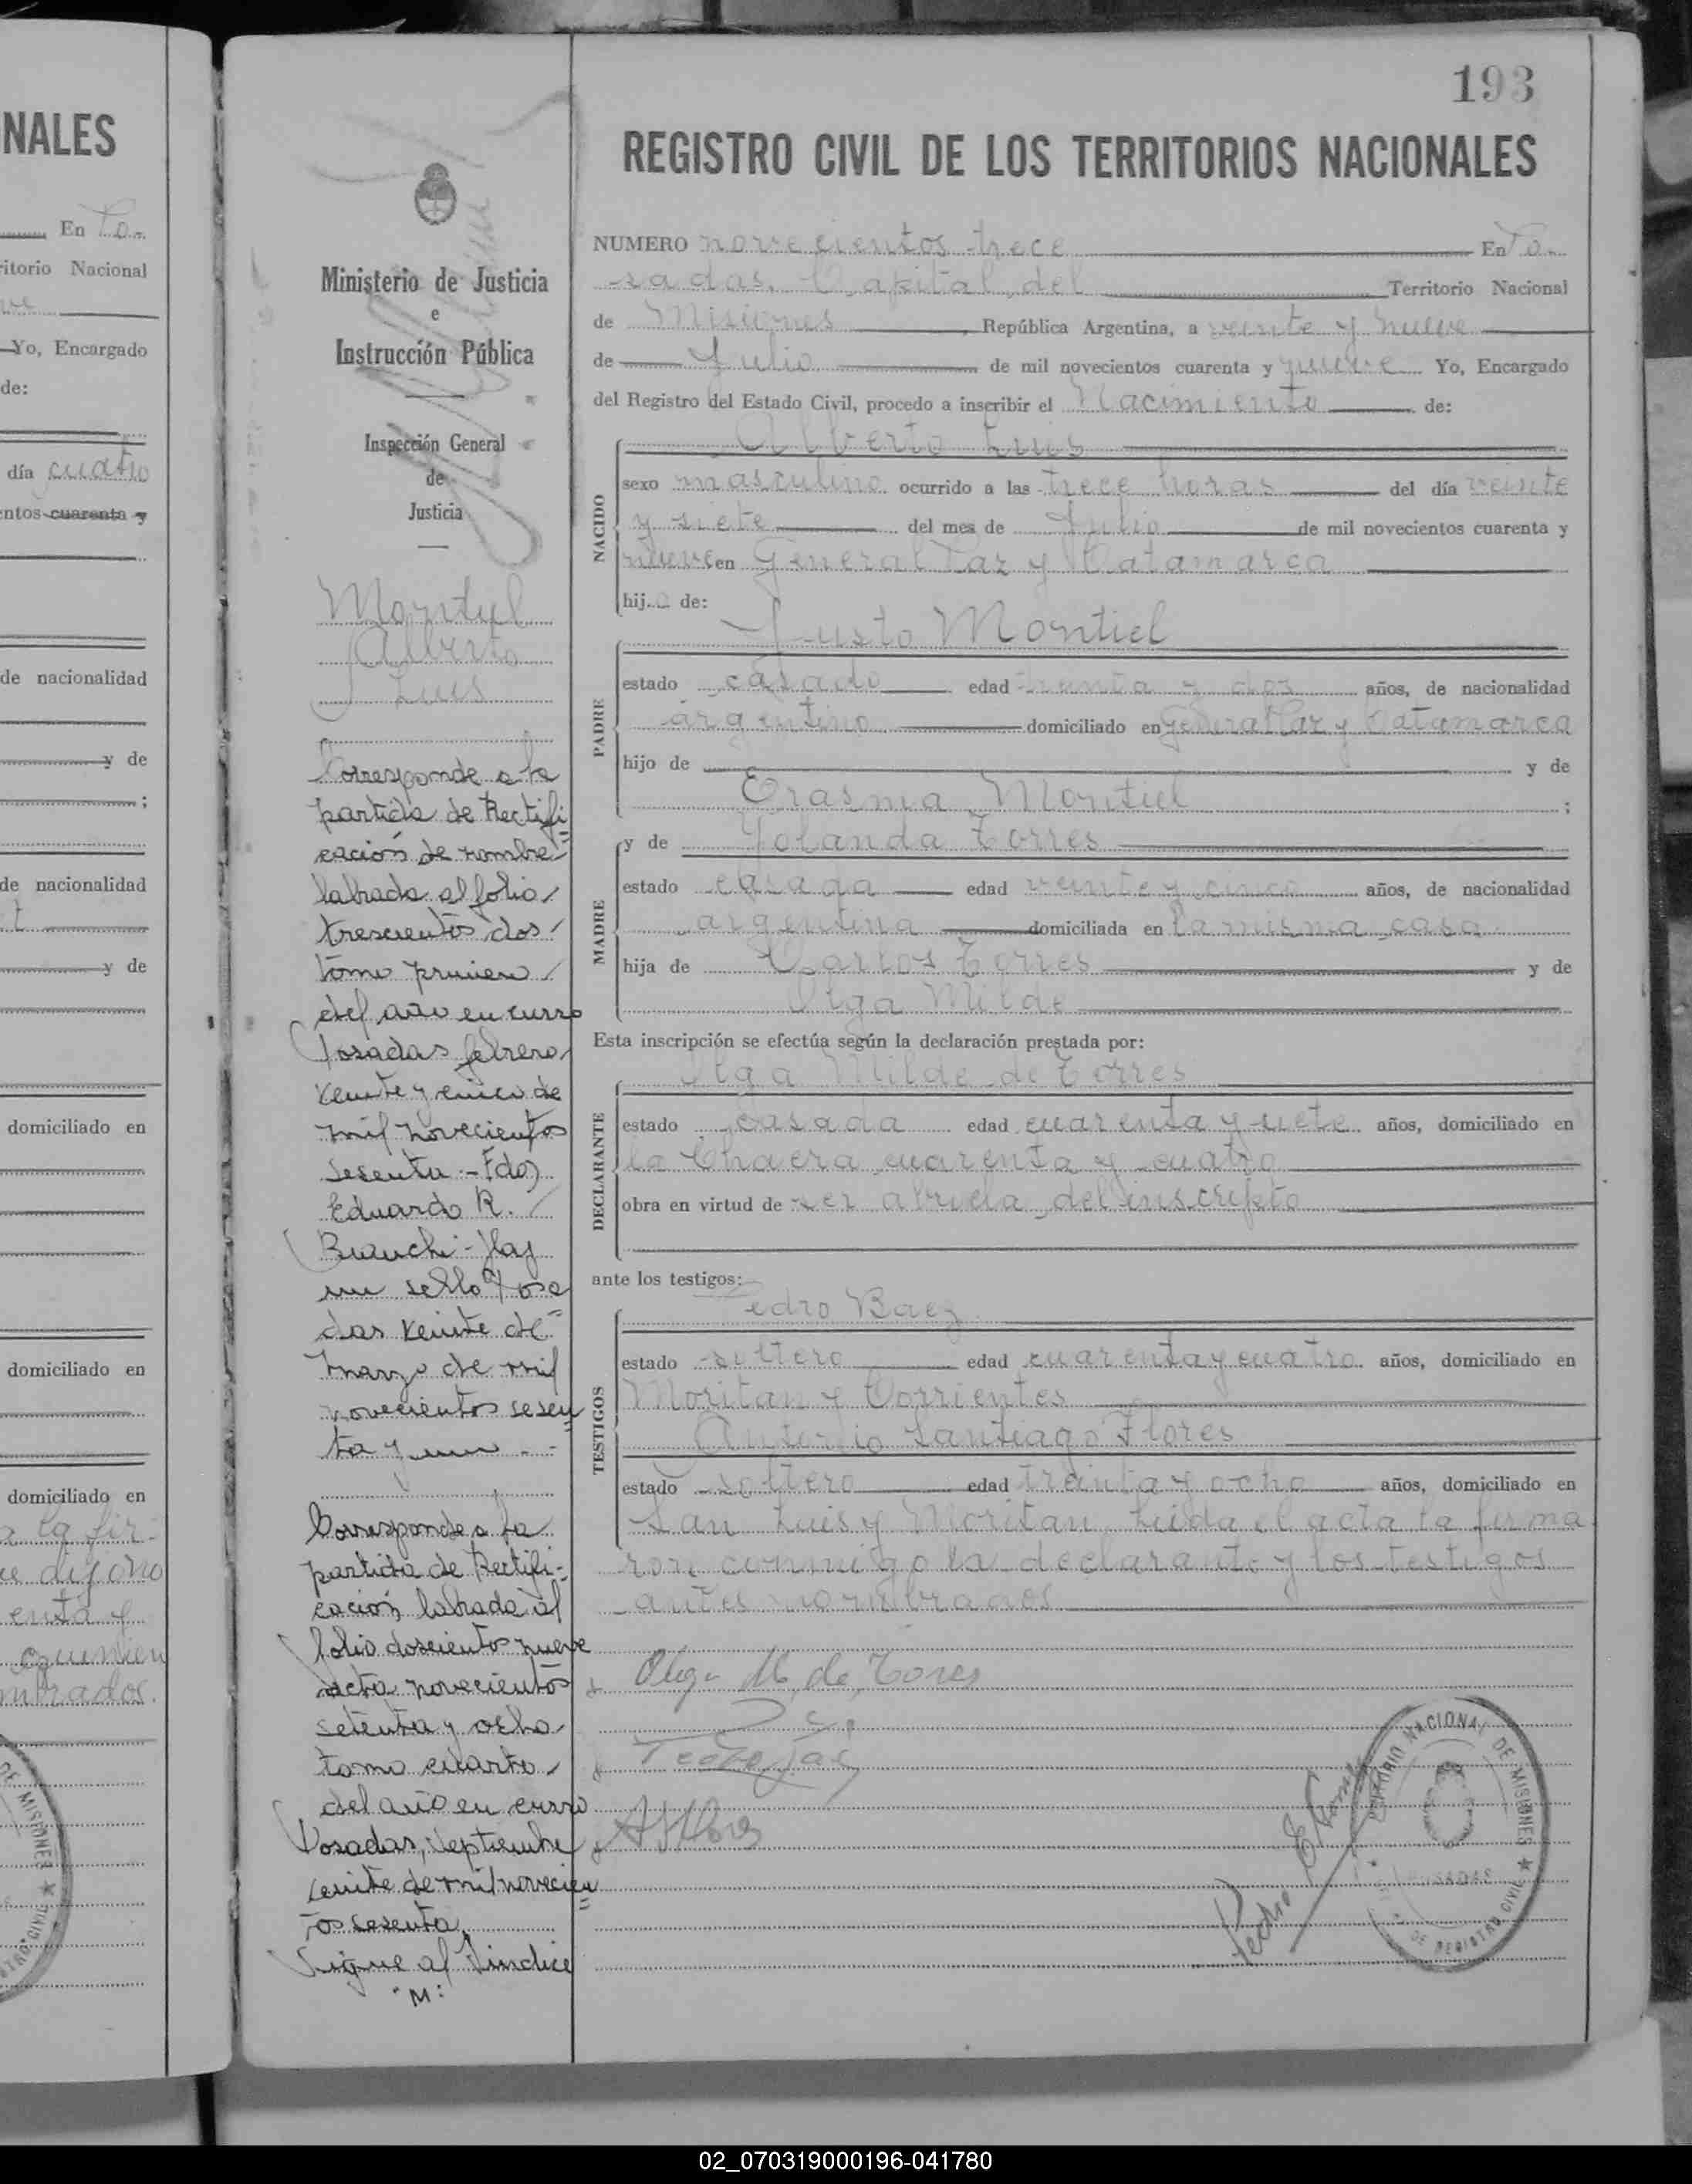 NALES
En Po-
itorio Nacional
Yo, Encargado
de:
día cuatro
entos cuarenta y
de nacionalidad
y de
;
de nacionalidad
y de
domiciliado en
domiciliado en
domiciliado en
a la fir-
e dijeron
enta y
mbrados.
193
REGISTRO CIVIL DE LOS TERRITORIOS NACIONALES
Ministerio de Justicia
e
Instrucción Pública
Inspección General
de
Justicia
Montiel
Alberto
Luis
Corresponde a la
partida de Rectifi
cación de nombre
labrada al folio
trescientos dos
tomo primero
del año en curso
Posadas febrero
veinte y cinco de
mil novecientos
sesenta.- Fdo)
Eduardo R.
Bianchi- Hay
un sello Posa
das veinte de
marzo de mil
novecientos sesen
ta y uno.-
Corresponde a la
partida de Rectifi-
cación labrada al
folio doscientos nueve
acta novecientos
setenta y ocho
tomo cuarto
del año en curso
Posadas, septiembre
veinte de mil novecien
tos sesenta
Sigue al Indice
"M:
NUMERO novecientos trece En Po-
sadas, Capital del Territorio Nacional
de Misiones, República Argentina, a veinte y nueve
de Julio de mil novecientos cuarenta y nueve Yo, Encargado
del Registro del Estado Civil, procedo a inscribir el Nacimiento de:
NACIDO
Alberto Luis
sexo masculino ocurrido a las trece horas del día veinte
y siete del mes de Julio de mil novecientos cuarenta y
nueve en General Paz y Catamarca
hijo de:
PADRE
Justo Montiel
estado casado edad treinta y dos años, de nacionalidad
argentino domiciliado en General Paz y Catamarca
hijo de y de
Erasma Montiel ;
MADRE
y de Yolanda Torres
estado casada edad veinte y cinco años, de nacionalidad
argentina domiciliada en la misma casa
hija de Carlos Torres y de
Olga Milde
Esta inscripción se efectúa según la declaración prestada por:
DECLARANTE
Olga Milde de Torres
estado casada edad cuarenta y siete años, domiciliado en
la Chacra cuarenta y cuatro
obra en virtud de ser abuela del inscripto
ante los testigos:
TESTIGOS
Pedro Baez
estado soltero edad cuarenta y cuatro años, domiciliado en
Moritan y Corrientes
Antonio Santiago Flores
estado soltero edad treinta y ocho años, domiciliado en
San Luis y Moritan. Leida el acta la firma
ron conmigo la declarante y los testigos
antes nombrados
Olga M. de Torres
Pedro Baez
A S Flores
TERRITORIO NACIONAL DE MISIONES
POSADAS
DE REGISTRO CIVIL
02_070319000196-041780